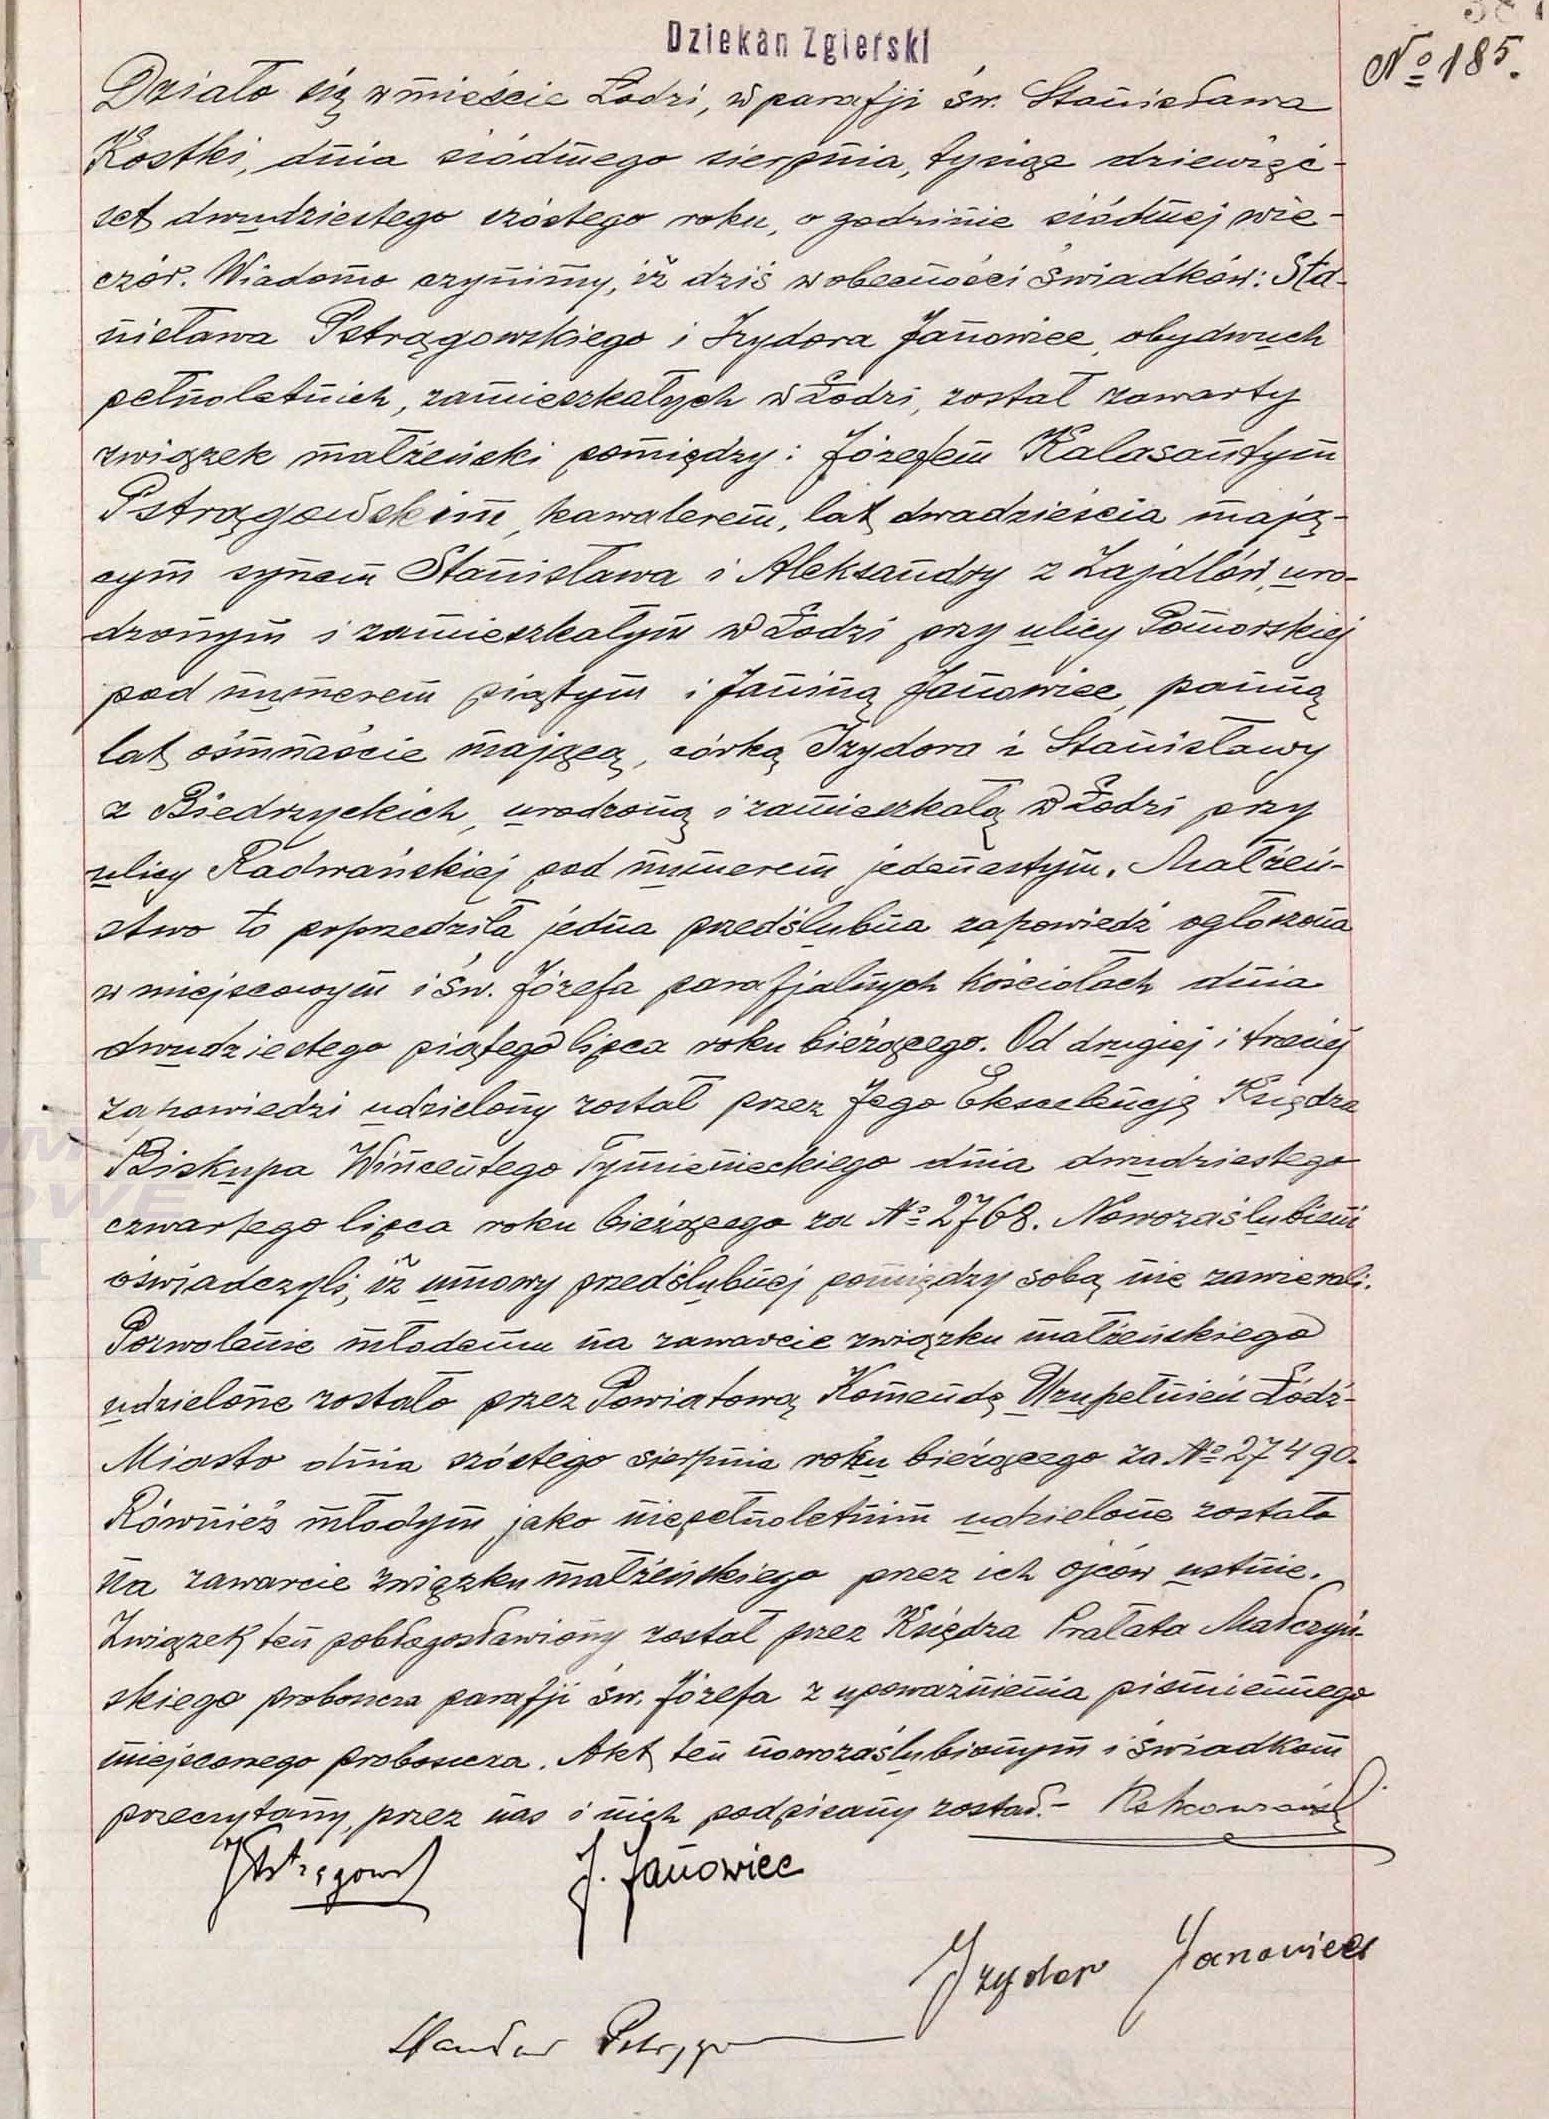 Dziekan Zgierski
No 185.
Działo się w mieście Łodzi, w parafji św. Stanisława
Kostki, dnia siódmego sierpnia, tysiąc dziewięć-
set dwudziestego szóstego roku, o godzinie siódmej wie-
czór. Wiadomo czynimy, iż dziś w obecności świadków: Sta-
nisława Pstrągowskiego i Izydora Janowiec, obydwuch
pełnoletnich, zamieszkałych w Łodzi, został zawarty
związek małżeński pomiędzy: Józefem Kalasantym
Pstrągowskim, kawalerem, lat dwadzieścia mają-
cym synem Stanisława i Aleksandry z Zajdlów, uro-
dzonym i zamieszkałym w Łodzi przy ulicy Pomorskiej
pod numerem piątym i Janiną Janowiec, panną
lat ośmnaście mającą, córką Izydora i Stanisławy
z Biedrzyckich, urodzoną i zamieszkałą w Łodzi przy
ulicy Radwańskiej pod numerem jedenastym. Małżeń-
stwo to poprzedziła jedna przedślubna zapowiedź ogłoszona
w miejscowym i św. Józefa parafjalnych kościołach dnia
dwudziestego piątego lipca roku bieżącego. Od drugiej i trzeciej
zapowiedzi udzielony został przez Jego Ekscelencję Księdza
Biskupa Wincentego Tymienieckiego dnia dwudziestego
czwartego lipca roku bieżącego za No 2768. Nowozaślubieni
oświadczyli, iż umowy przedślubnej pomiędzy sobą nie zawierali.
Pozwolenie młodemu na zawarcie związku małżeńskiego
udzielone zostało przez Powiatową Komendę Uzupełnień Łódź-
Miasto dnia szóstego sierpnia roku bieżącego za No 27490.
Również młodym jako niepełnoletnim udzielone zostało
na zawarcie związku małżeńskiego przez ich ojców ustnie.
Związek ten pobłogosławiony został przez Księdza Prałata Małczyń-
skiego proboszcza parafji św. Józefa z upoważnienia piśmiennego
miejscowego proboszcza. Akt ten nowozaślubionym i świadkom
przeczytany, przez nas i nich podpisany został.-
J. Janowiec
Izydor Janowiec